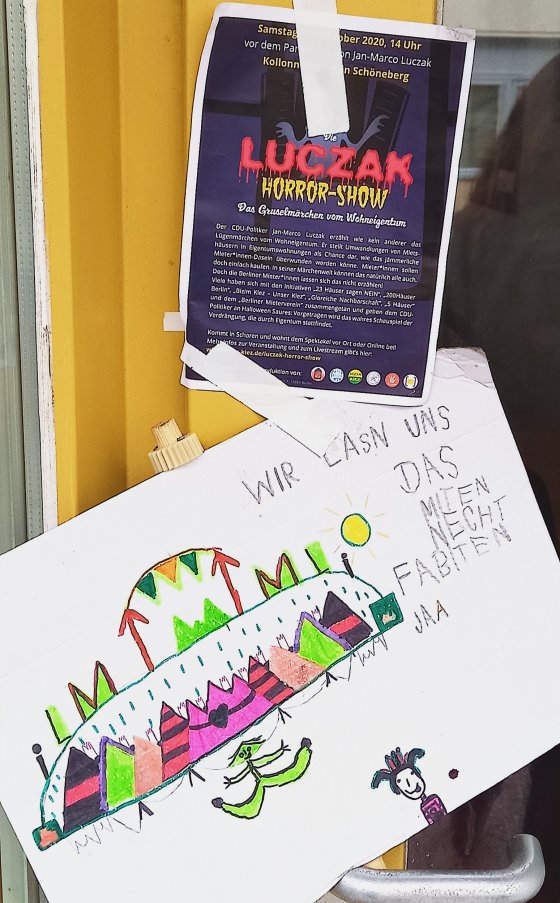 Samstag 2020, 14 Uhr
vor dem Jan-Marco Luczak
Schöneberg
Die
LUCZAK
HORROR-SHOW
Das Gruselmärchen vom Wohneigentum
Der CDU-Poliker Jan-Marco Luczak erzählt wie kein anderer das
Lügenmärchen vom Wohneigentum. Er stellt Umwandlungen von Miets-
häusern in Eigentumswohnungen als Chance dar, wie das jämmerliche
Mieter*innen-Dasein überwunden werden könne. Mieter*innen sollen
doch einfach kaufen. In seiner Märchenwelt können das natürlich alle auch.
Doch die Berliner Mieter*innen lassen sich das nicht erzählen!
Viele haben sich mit den Initiativen „23 Häuser sagen NEIN", „200Häuser
Berlin", „Bizim Kiez – Unser Kiez", „Gloreiche Nachbarschaft", „5 Häuser"
und dem „Berliner Mieterverein" zusammengetan und geben dem CDU-
Politiker an Halloween Saures: Vorgetragen wird das wahres Schauspiel der
Verdrängung, die durch Eigentum stattfindet.
Kommt in Scharen und wohnt dem Spektakel vor Ort oder Online bei!
Mehr Infos zur Veranstaltung und zum Livestream gibt's hier:
kiez.de/luczak-horror-show
von:
WIR LASN UNS
DAS
MIEN
NECHT
FABITEN
JAA